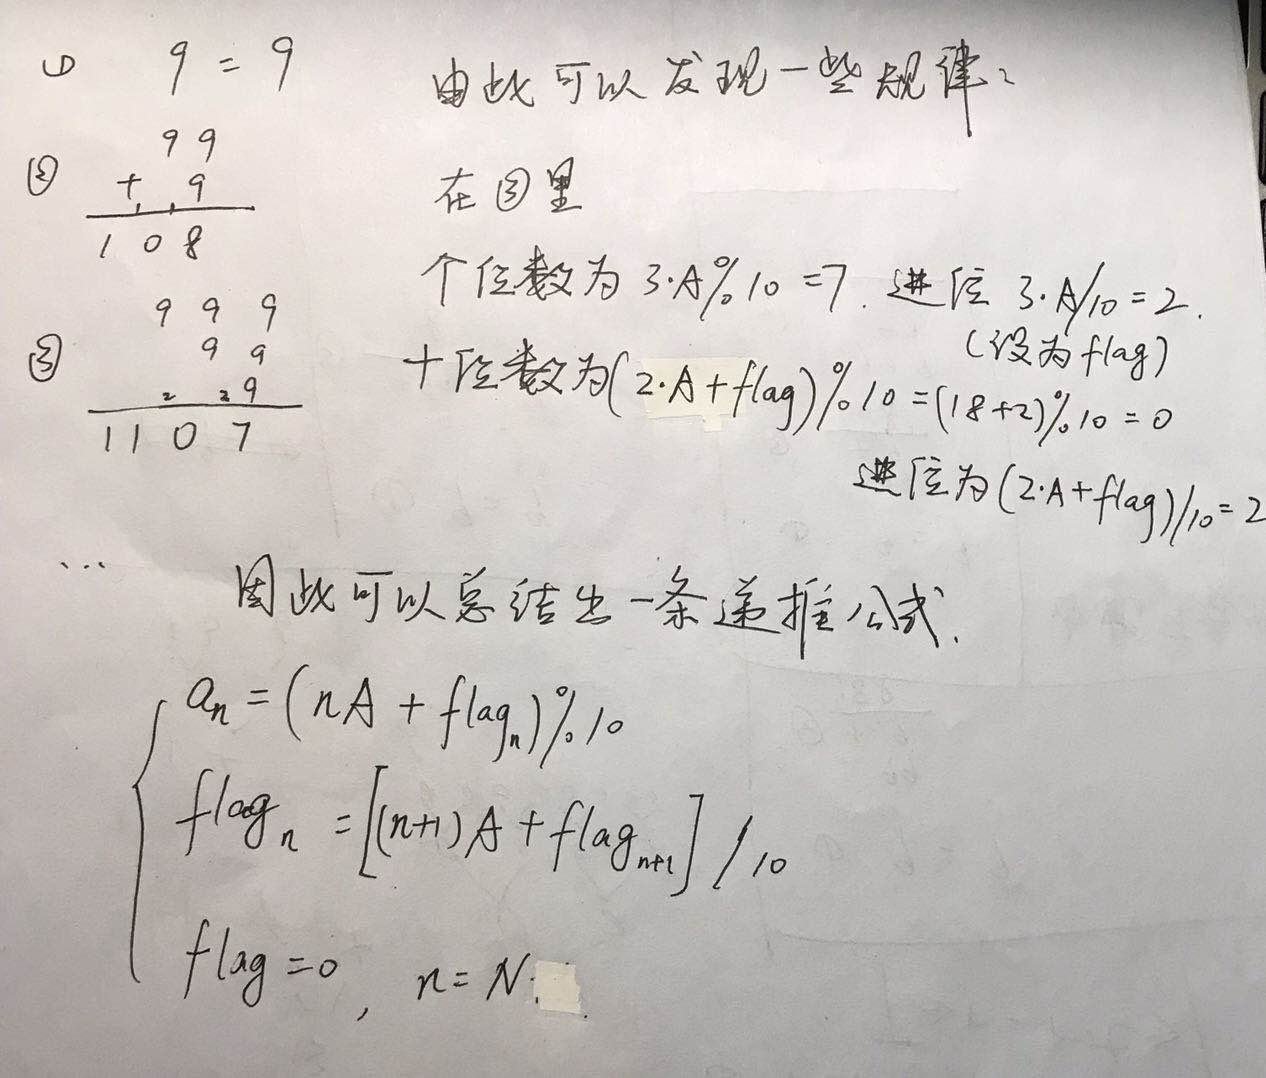 ① 9 = 9
由此可以发现一些规律:
② 99
+ 9
108
在③里
个位数为 3·A%10=7. 进位 3·A/10=2.
(设为flag)
③ 999
99
2 29
1107
十位数为(2·A+flag)%10=(18+2)%10=0
进位为(2·A+flag)/10=2
...
因此可以总结出一条递推公式.
aₙ=(nA+flagₙ)%10
flagₙ=[(n+1)A+flagₙ₊₁]/10
flag=0, n=N.